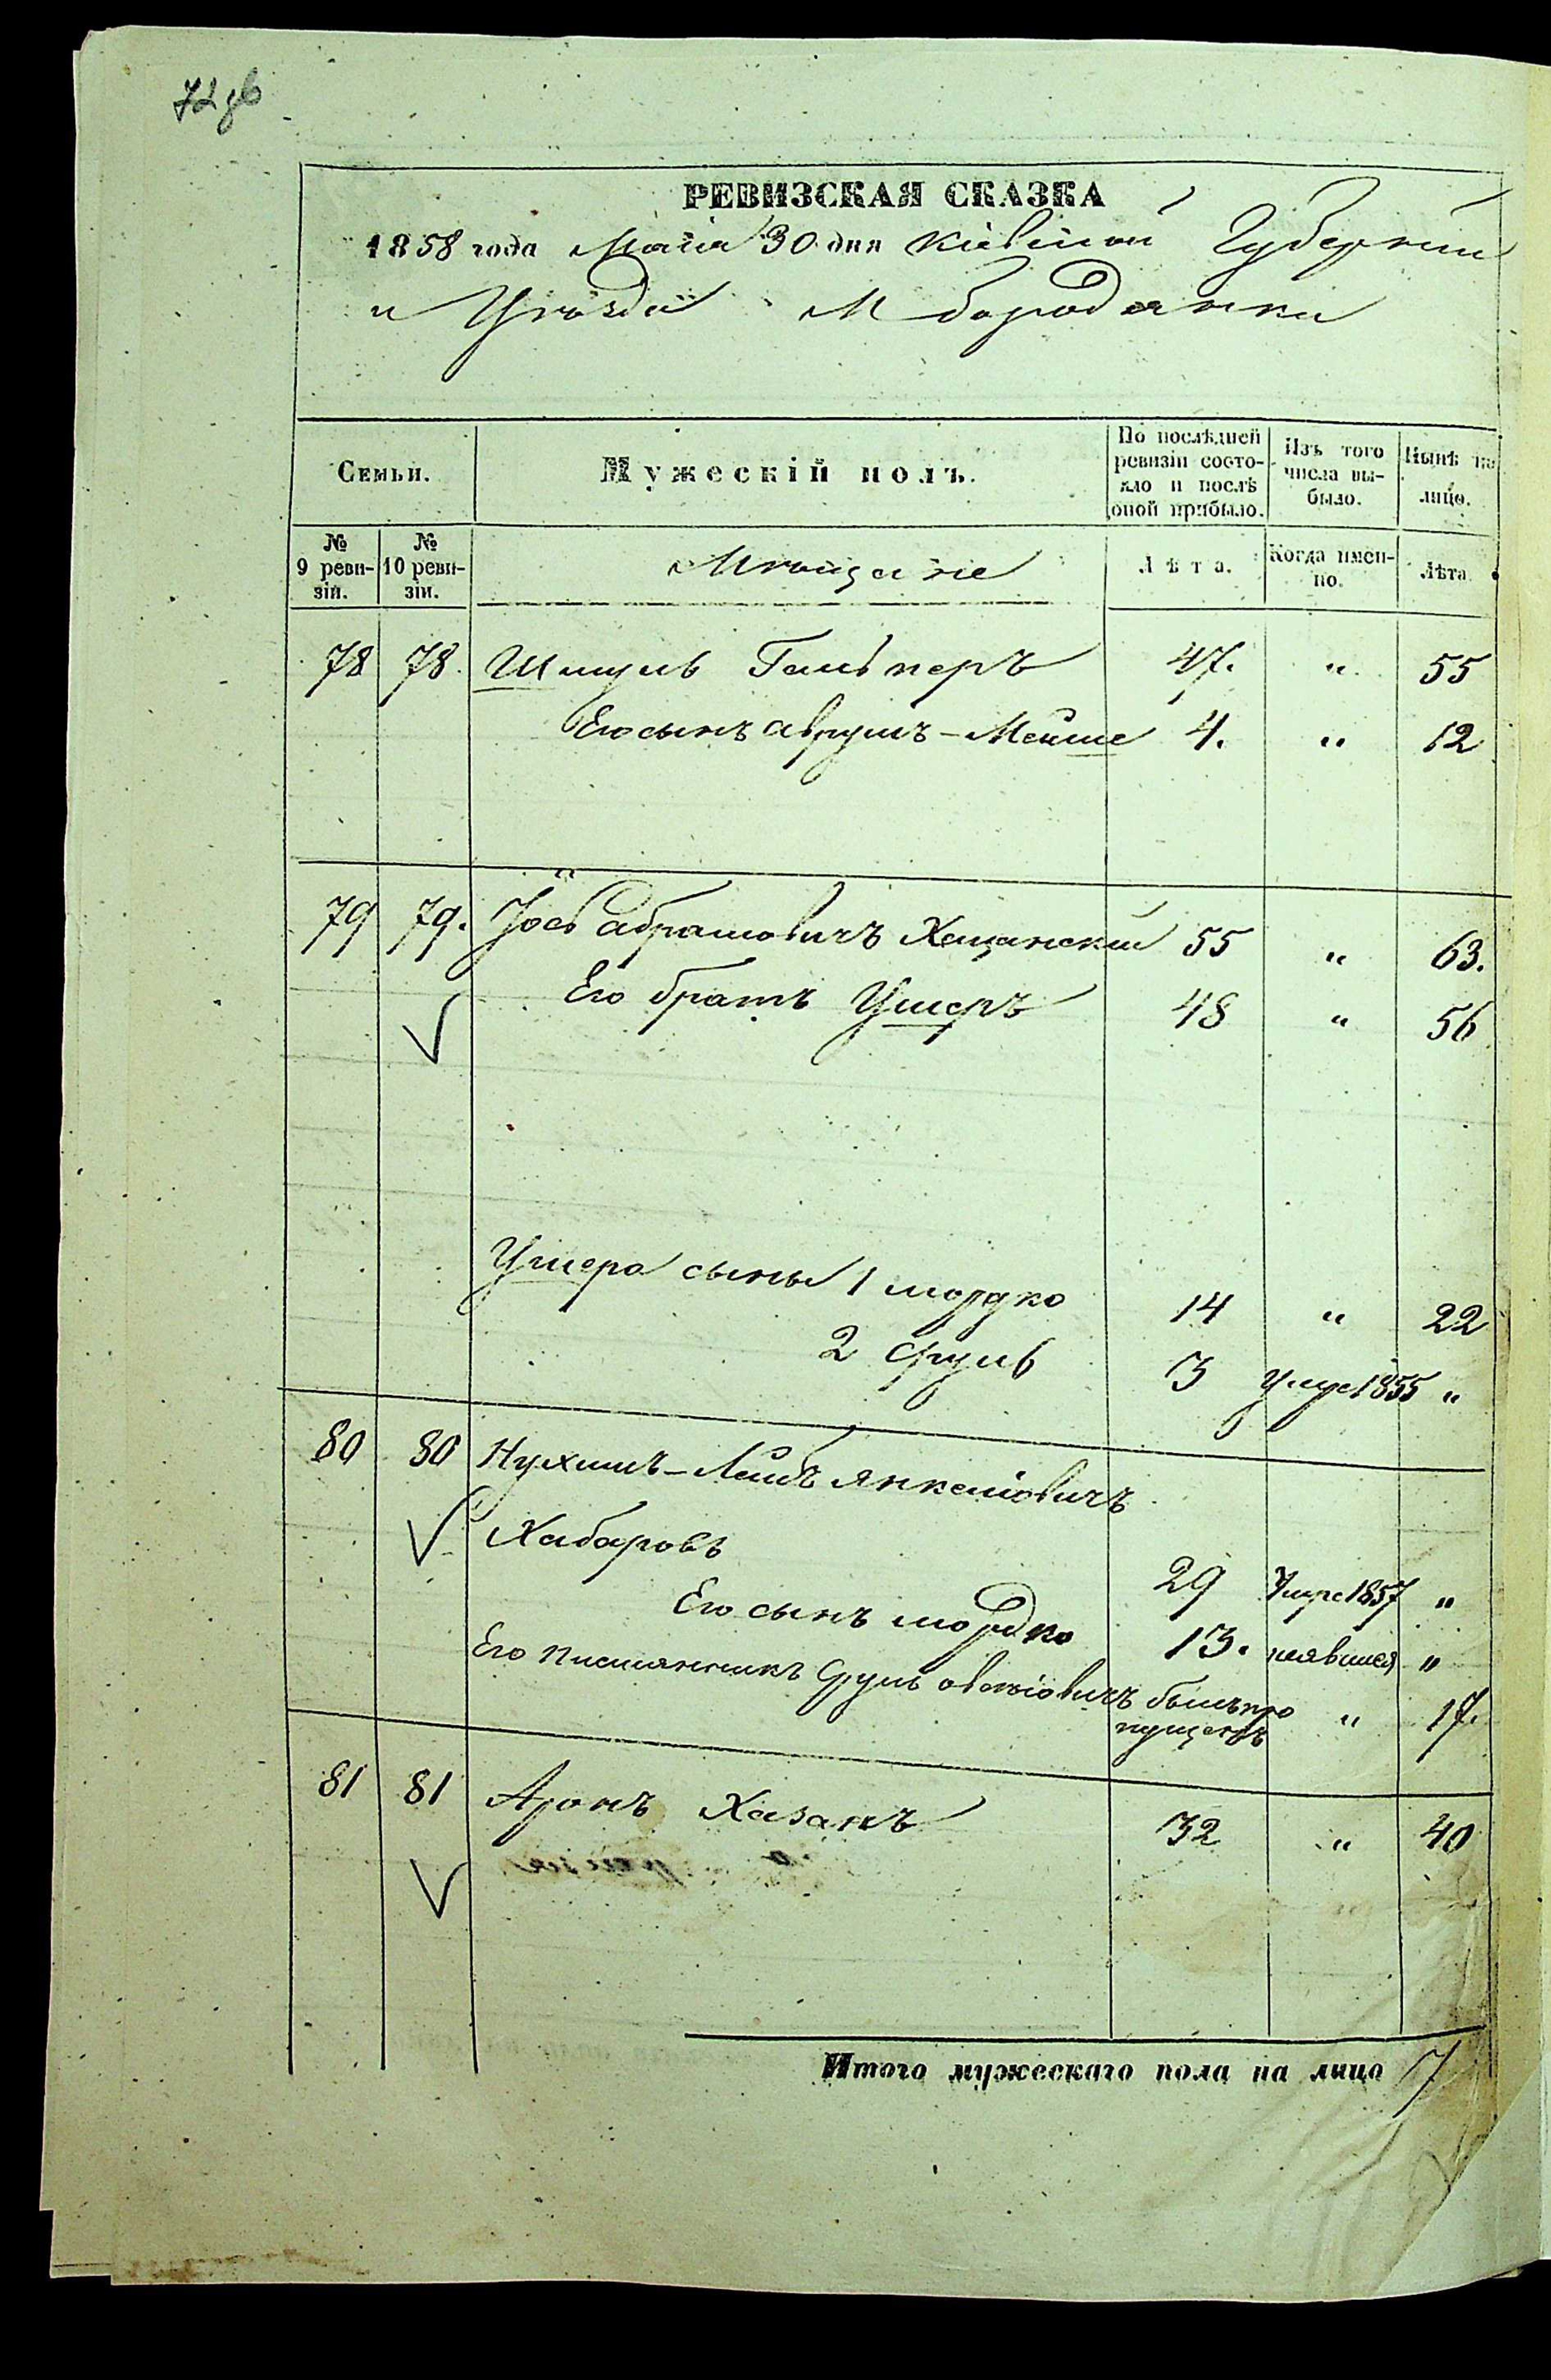 РЕВИЗСКАЯ СКАЗКА
1858 года Маія 30 дня Кіевской Губерніи
и Уѣзда М Бородянки
Семьи.
Мужескій полъ.
По послѣдней ревизіи состояло и послѣ оной прибыло.
Изъ того числа выбыло.
Нынѣ на лицо.
№ 9 ревизіи.
№ 10 ревизіи.
Мѣщане
Лѣта.
Когда именно.
Лѣта.
78 78. Шмуль Гальперъ 47. " 55
Его сынъ Аврумъ-Мейше 4. " 12
79 79. Іось Абрамовичъ Хащанскій 55 " 63.
Его братъ Ушеръ 48 " 56
Ушера сыны 1 Мордко 14 " 22
2 Сруль 3 Умре 1855 "
80 80 Нухимъ-Лейбъ Янкелiовичъ
Хабаровъ 29 Умре 1857 "
Его сынъ Мордко 13. неявился "
Его племянникъ Сруль былъ про
пущенъ " 17.
81 81 Аронъ Хазанъ 32 " 40
Итого мужескаго пола на лицо 7